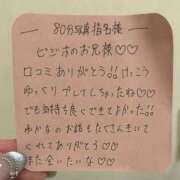 80分写真指名様
ビジホのお兄様♡♡
口コミありがとう!!けっこう
ゆっくりプレしてしちゃったね♡
でも気持ち良くできてよかった!!
ゆかなのお話もたくさんきいて
くれてありがとう♡♡
また会いたいな♡